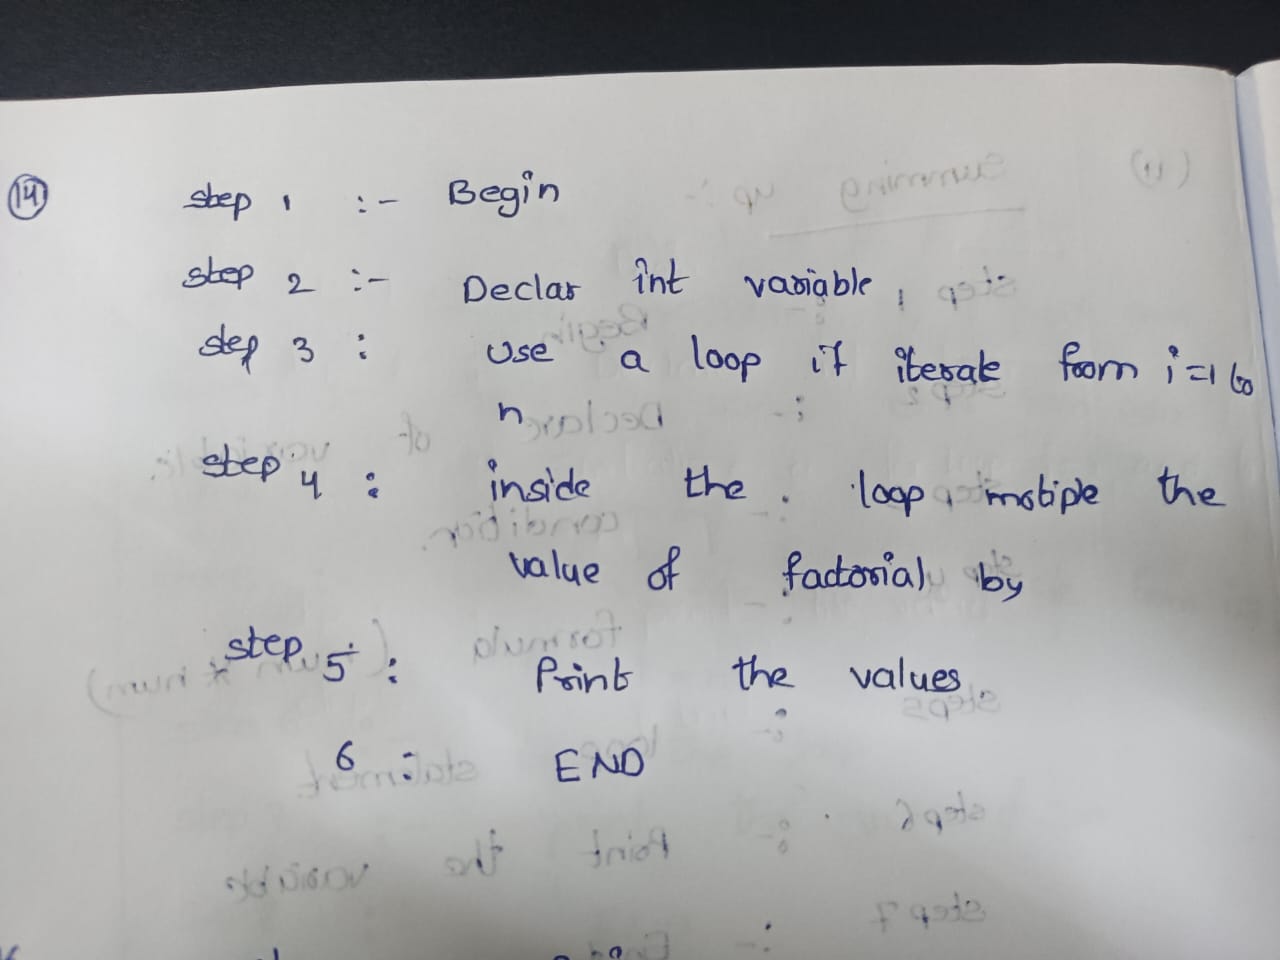 14
step 1 :- Begin
step 2 :- Declar int variable,
step 3 : use a loop it iterate from i=1 to
n
step 4 : inside the loop motiple the
value of factorial by
step 5 : Print the values
6 : END